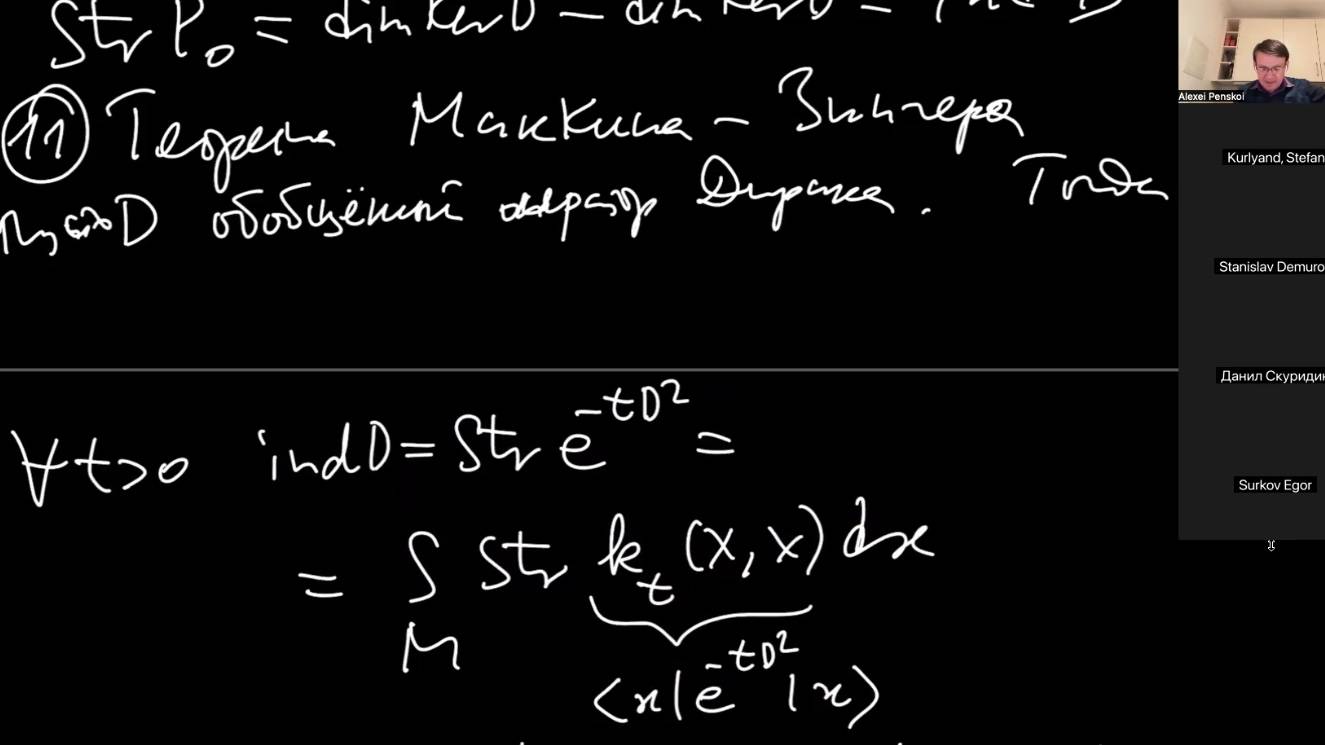 Str P₀ = dim Ker D − dim Ker D = ind D
⑪ Теорема МакКина – Зингера
Пусть D обобщённый оператор Дирака. Тогда
∀t>0 ind D = Str e^{-tD²} =
= ∫_M Str k_t (x, x) dx
<x|e^{-tD²}|x>
Alexei Penskoi
Kurlyand, Stefan
Stanislav Demuro
Данил Скуридин
Surkov Egor